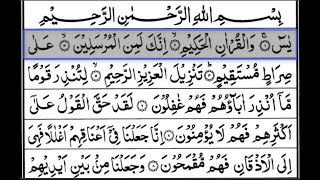 بِسْمِ اللهِ الرَّحْمٰنِ الرَّحِيْمِ
يٰسٓ ۚ وَالْقُرْاٰنِ الْحَكِيْمِ ۙ اِنَّكَ لَمِنَ الْمُرْسَلِيْنَ ۙ عَلٰى
صِرَاطٍ مُّسْتَقِيْمٍ ؕ تَنْزِيْلَ الْعَزِيْزِ الرَّحِيْمِ ۙ لِتُنْذِرَ قَوْمًا
مَّاۤ اُنْذِرَ اٰبَآؤُهُمْ فَهُمْ غٰفِلُوْنَ ۝ لَقَدْ حَقَّ الْقَوْلُ عَلٰۤى
اَكْثَرِهِمْ فَهُمْ لَا يُؤْمِنُوْنَ ۝ اِنَّا جَعَلْنَا فِيْۤ اَعْنَاقِهِمْ اَغْلٰلًا فَهِيَ
اِلَى الْاَذْقَانِ فَهُمْ مُّقْمَحُوْنَ ۝ وَجَعَلْنَا مِنْۢ بَيْنِ اَيْدِيْهِمْ